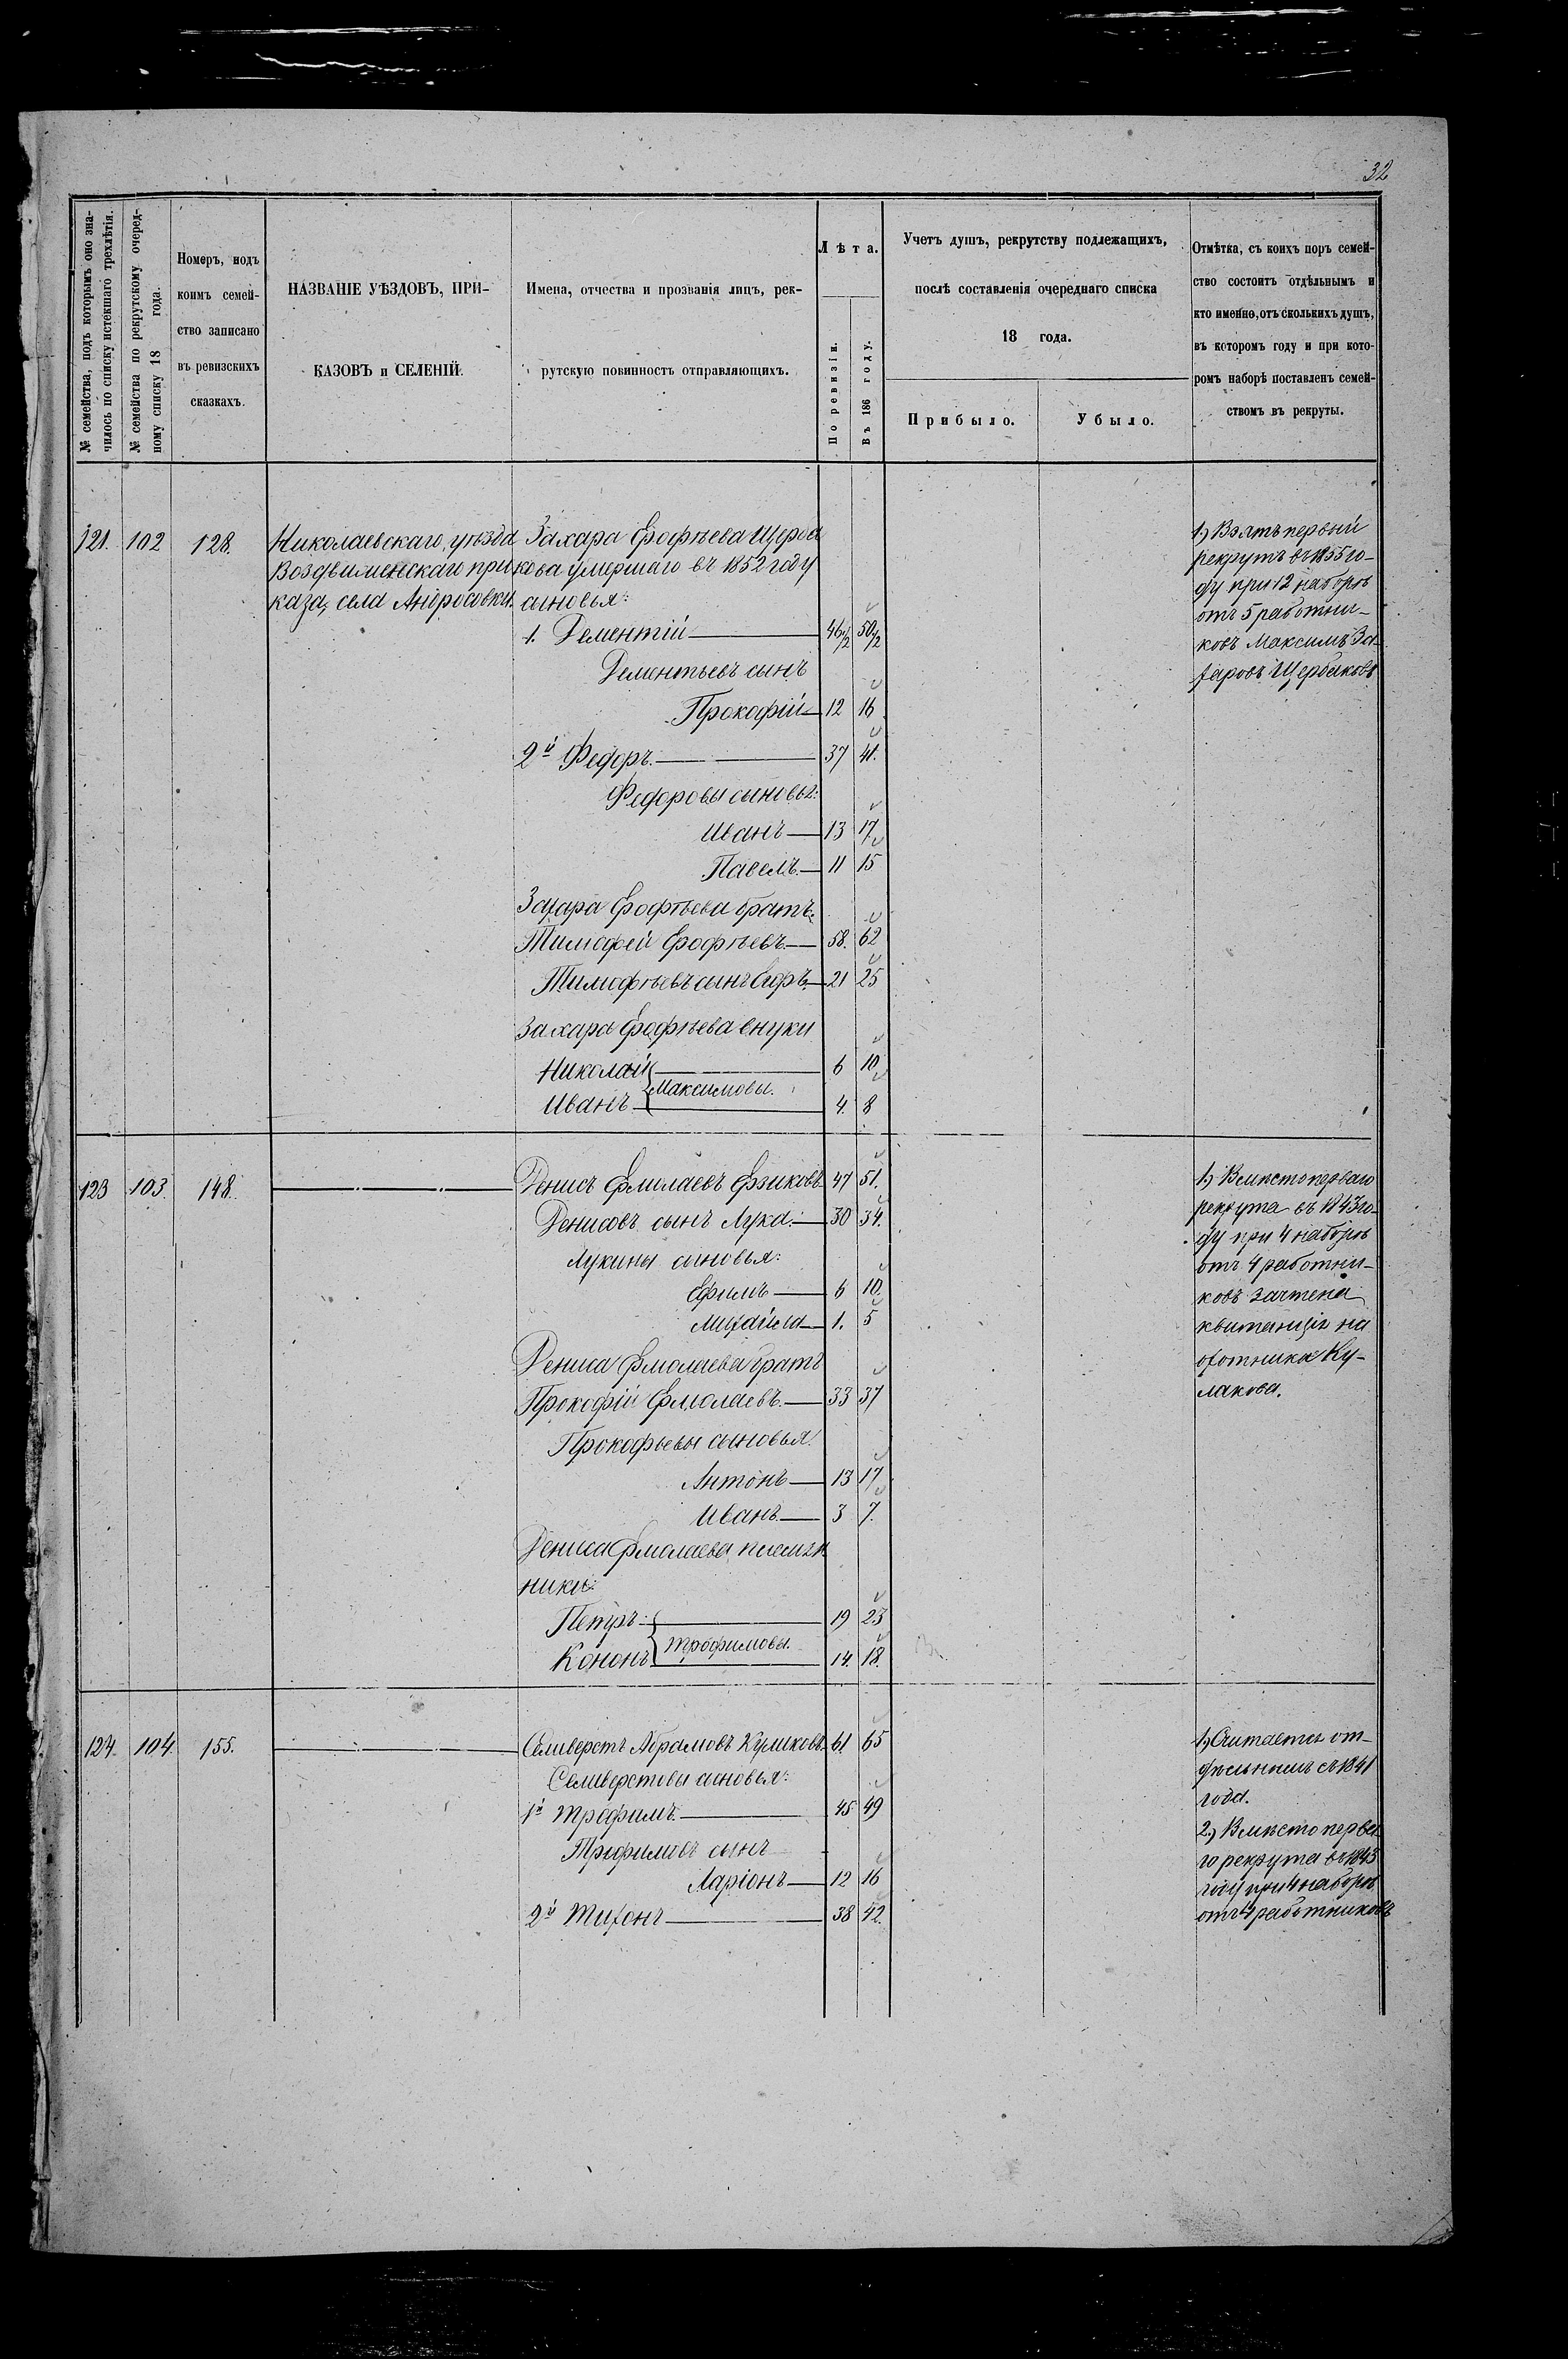 32
№ семейства, подъ которымъ оно зна-
чилось по списку истекшаго трехлѣтія.
№ семейства по рекрутскому очеред-
ному списку 18 года.
Номеръ, подъ
коимъ семей-
ство записано
въ ревизскихъ
сказкахъ.
НАЗВАНІЕ УѢЗДОВЪ, ПРИ-
КАЗОВЪ и СЕЛЕНІЙ.
Имена, отчества и прозванія лицъ, рек-
рутскую повинность отправляющихъ.
Лѣта.
По ревизіи.
Въ 186 году.
Учетъ душъ, рекрутству подлежащихъ,
послѣ составленія очереднаго списка
18 года.
Прибыло.
Убыло.
Отмѣтка, съ коихъ поръ семей-
ство состоитъ отдѣльнымъ и
кто именно, отъ сколькихъ душъ,
въ которомъ году и при кото-
ромъ наборѣ поставленъ семей-
ствомъ въ рекруты.
121. 102 128.
Николаевскаго уѣзда
Воздвиженскаго при
каза, села Андросовки.
Захара Ерофѣева Щерба
кова умершаго въ 1852 году
сыновья:
1. Дементій 46 1/2 50 1/2
Дементьевъ сынъ
Прокофій 12 16
2й Федоръ. 37 41.
Федоровы сыновья:
Иванъ 13 17
Павелъ. 11 15
Захара Ерофѣева братъ
Тимофей Ерофѣевъ. 58. 62
Тимофѣевъ сынъ 21 25
Захара Ерофѣева внуки
Николай 6 10
Максимовы.
Иванъ 4. 8
1) Взятъ первый
рекрутъ въ 1855 го-
ду при 12 наборѣ
отъ 5 работни-
ковъ Максимъ За-
харовъ Щербаковъ
123 103. 148.
Денисъ Ермолаевъ 47 51.
Денисовъ сынъ Лука. 30 34.
Лукины сыновья:
Ефимъ 6 10.
Михайла 1. 5
Дениса Ермолаева братъ
Прокофій Ермолаевъ. 33 37
Прокофьевы сыновья.
Антонъ 13 17
Иванъ. 3 7.
Дениса Ермолаева племян
ники:
Петръ 19 23
Трофимовы.
Кононъ 14. 18.
1) Вмѣсто перваго
рекрута въ 1843 го-
ду при 4 наборѣ
отъ 4 работни-
ковъ зачтена
квитанція на
охотника Ку-
лакова.
124. 104. 155.
Селиверстъ Абрамовъ Куликовъ. 61 65
Селиверстовы сыновья:
1й Трофимъ. 45 49
Трофимовъ сынъ
Ларіонъ 12 16
2й Тихонъ 38 42.
1) Считается от-
дѣльнымъ съ 1841
года.
2.) Вмѣсто перва
го рекрута въ 1843
году при 4 наборѣ
отъ 4 работниковъ